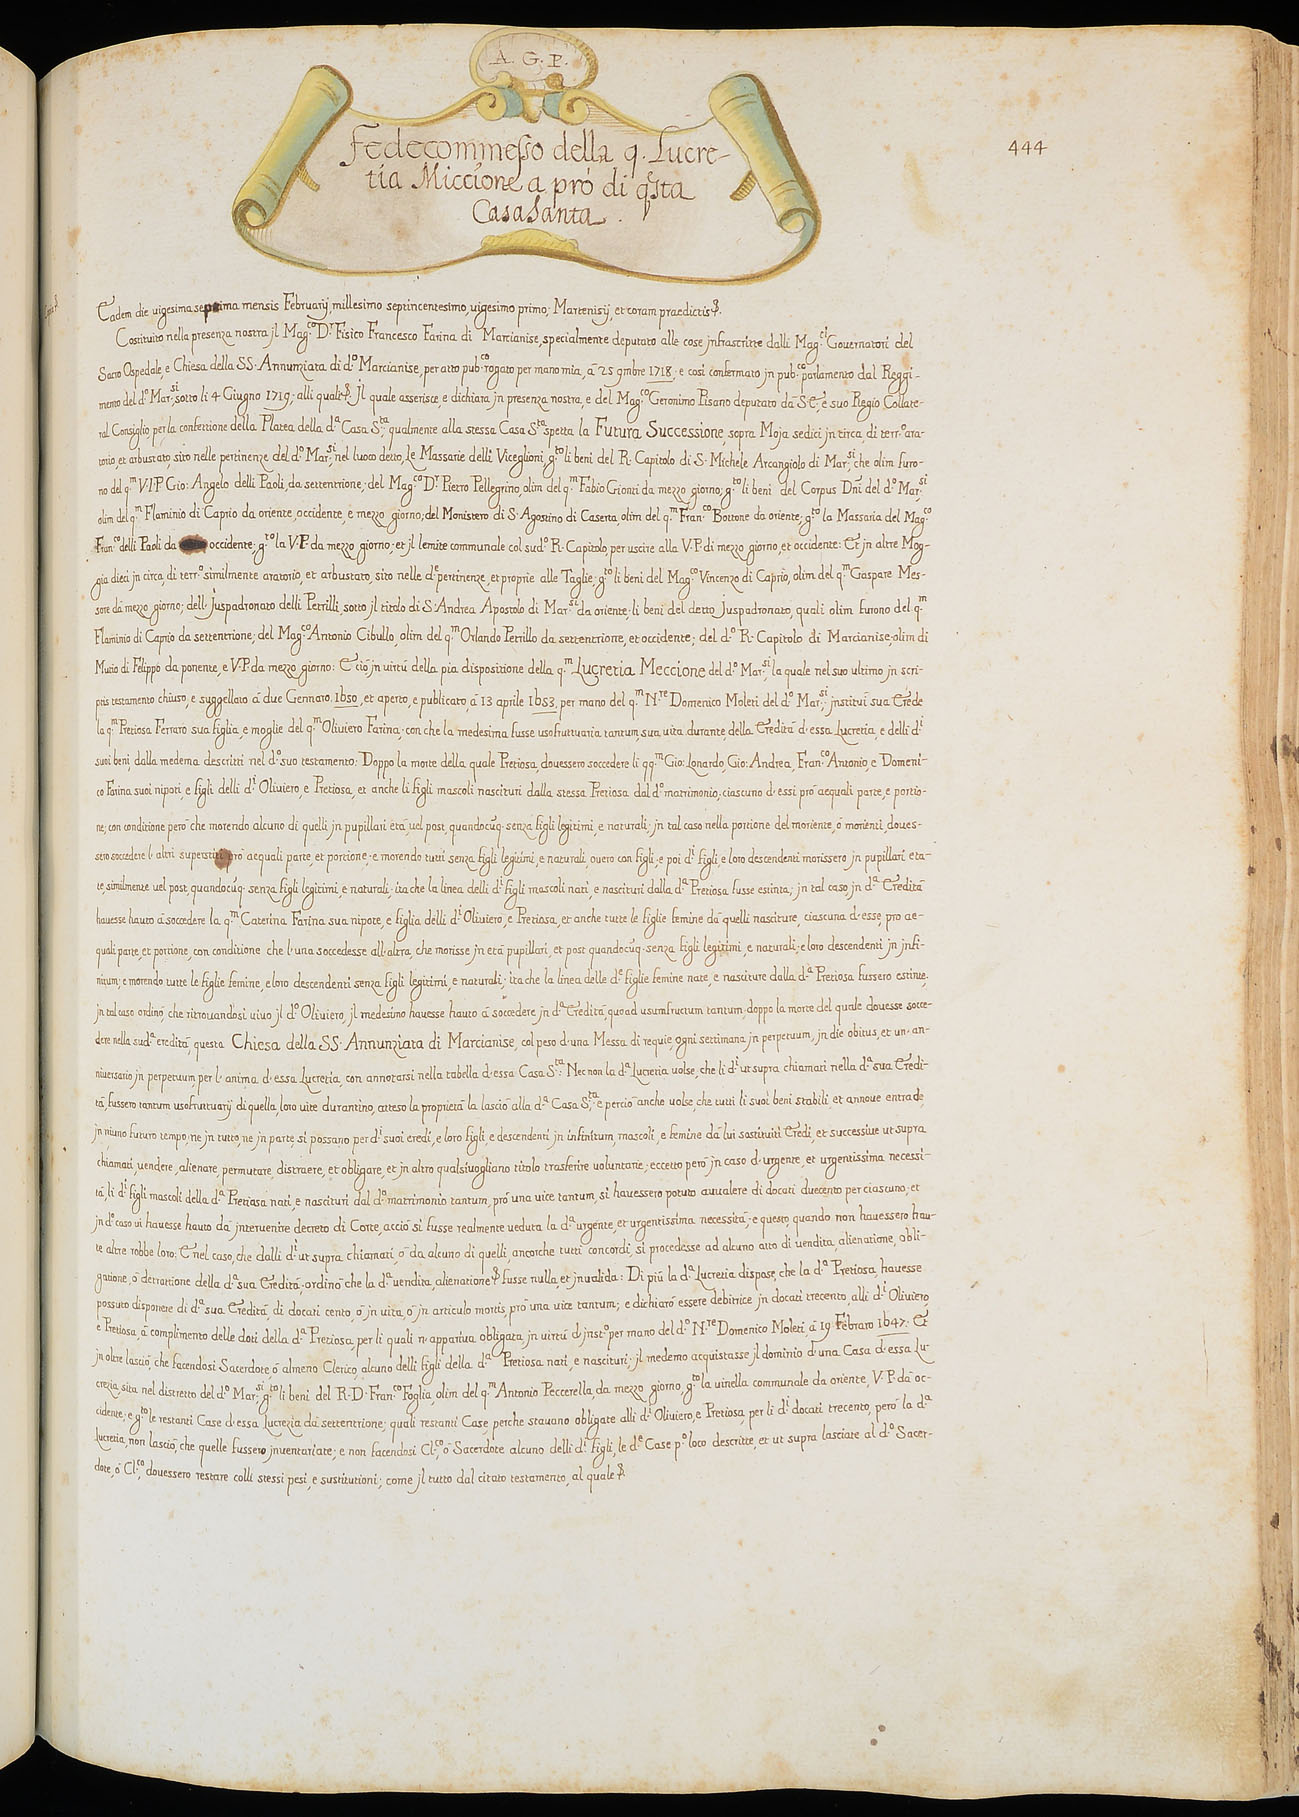 A. G. P.
444
Fedecommesso della q. Lucre-
tia Miccione a pró di qsta
Casa Santa.
Eadem die vigesima septima mensis Februarij, millesimo septincentesimo, vigesimo primo; Martenisij, et coram praedictis &.
Costituito nella presenza nostra jl Mag.co D.r Fisico Francesco Farina di Marcianise, specialmente deputato alle cose jnfrascritte dalli Mag.ci Gouernatori del
Sacro Ospedale, e Chiesa della SS. Annunziata di d.o Marcianise, per atto pub.co rogato per mano mia, á 25 9mbre 1718. e cosi confermato jn pub.co parlamento dal Reggi-
mento del d.o Mar.si, sotto li 4 Giugno 1719, alli quali &. Jl quale asserisce, e dichiara jn presenza nostra, e del Mag.co Geronimo Pisano deputato dá S.E. e suo Regio Collate-
ral Consiglio, per la confettione della Platea della d.a Casa S.ta, qualmente alla stessa Casa S.ta spetta la Futura Successione, sopra Moja sedici jn circa, di terr.o ara-
torio, et arbustato, sito nelle pertinenze del d.o Mar.si, nel luoco detto, Le Massarie delli Viceglioni, g.to li beni del R. Capitolo di S. Michele Arcangiolo di Mar.si, che olim furo-
no del q.m V.I.P. Gio: Angelo delli Paoli, da settentrione; del Mag.co D.r Pietro Pellegrino, olim del q.m Fabio Gionti da mezzo giorno; g.to li beni del Corpus Dnī del d.o Mar.si
olim del q.m Flaminio di Caprio da oriente, occidente, e mezzo giorno; del Monistero di S. Agostino di Caserta, olim del q.m Fran.co Bottone da oriente; g.to la Massaria del Mag.co
Fran.co delli Paoli da occidente; g.to la V.P. da mezzo giorno; et jl lemite communale col sud.o R. Capitolo, per uscire alla V.P. di mezzo giorno, et occidente: Et jn altre Mog-
gia dieci jn circa, di terr.o similmente aratorio, et arbustato, sito nelle d.e pertinenze, et proprie alle Taglie; g.to li beni del Mag.co Vincenzo di Caprio, olim del q.m Gaspare Mes-
sore dá mezzo giorno; dell' Juspadronato delli Petrilli, sotto jl titolo di S. Andrea Apostolo di Mar.si da oriente; li beni del detto Juspadronato, quali olim furono del q.m
Flaminio di Caprio da settentrione; del Mag.co Antonio Cibullo, olim del q.m Orlando Petrillo da settentrione, et occidente; del d.o R. Capitolo di Marcianise, olim di
Mutio di Felippo da ponente, e V.P. da mezzo giorno: E ció jn virtú della pia disposizione della q.m Lucretia Meccione del d.o Mar.si, la quale nel suo ultimo jn scri-
ptis testamento chiuso, e suggellato á due Gennaro 1650, et aperto, e publicato, á 13 aprile 1653, per mano del q.m N.re Domenico Moleti del d.o Mar.si, jnstituí sua Erede
la q.m Pretiosa Ferraro sua figlia, e moglie del q.m Oliviero Farina; con che la medesima fusse usofruttuaria tantum, sua vita durante, della Ereditá d'essa Lucretia, e delli d.i
suoi beni, dalla medema descritti nel d.o suo testamento: Doppo la morte della quale Pretiosa, douessero soccedere li qq.m Gio: Lonardo, Gio: Andrea, Fran.co Antonio, e Domeni-
co Farina suoi nipoti, e figli delli d.i Oliviero, e Pretiosa, et anche li figli mascoli nascituri dalla stessa Pretiosa dal d.o matrimonio, ciascuno d'essi pró aequali parte, e portio-
ne; con conditione peró che morendo alcuno di quelli jn pupillari etá, vel post, quandocūq; senza figli legitimi, e naturali; jn tal caso nella portione del moriente, ó morienti, doues-
sero soccedere l'altri superstiti pró aequali parte, et portione; e morendo tutti senza figli legitimi, e naturali, ouero con figli, e poi d.i figli, e loro descendenti morissero jn pupillari eta-
te, similmente vel post, quandocūq; senza figli legitimi, e naturali, ita che la linea delli d.i figli mascoli nati, e nascituri dalla d.a Pretiosa fusse estinta; jn tal caso, jn d.a Ereditá
hauesse hauto á soccedere la q.m Caterina Farina sua nipote, e figlia delli d.i Oliviero, e Pretiosa, et anche tutte le figlie femine dá quelli nasciture, ciascuna d'esse, pro ae-
quali parte, et portione, con conditione che l'una soccedesse all'altra, che morisse jn etá pupillari, et post quandocūq; senza figli legitimi, e naturali, e loro descendenti jn jnfi-
nitum; e morendo tutte le figlie femine, e loro descendenti senza figli legitimi, e naturali; ita che la linea delle d.e figlie femine nate, e nasciture dalla d.a Pretiosa fussero estinte,
jn tal caso ordinó, che ritrouandosi viuo jl d.o Oliviero, jl medesimo hauesse hauto á soccedere jn d.a Ereditá, quoad usumfructum tantum, doppo la morte del quale douesse socce-
dere nella sud.a ereditá, questa Chiesa della SS. Annunziata di Marcianise, col peso d'una Messa di requie, ogni settimana jn perpetuum, jn die obitus, et un'an-
niversario jn perpetuum, per l'anima d'essa Lucretia, con annotarsi nella tabella d'essa Casa S.ta: Nec non la d.a Lucretia volse, che li d.i ut supra chiamati nella d.a sua Eredi-
tá, fussero tantum usofruttuarij di quella, loro vite durantino, atteso la proprietá la lasció alla d.a Casa S.ta, e perció anche volse, che tutti li suoi beni stabili, et annue entrade,
jn niuno futuro tempo, ne jn tutto, ne jn parte, si possano per d.i suoi eredi, e loro figli, e descendenti jn infinitum, mascoli, e femine dá lui sostituiti Eredi, et successive ut supra
chiamati, vendere, alienare, permutare, distraere, et obligare, et jn altro qualsivogliano titolo trasferire voluntarie; eccetto peró jn caso d'urgente, et urgentissima necessi-
tá, li d.i figli mascoli della d.a Pretiosa nati, e nascituri dal d.o matrimonio tantum, pró una vice tantum, si hauessero potuto avvalere di docati duecento per ciascuno; et
jn d.o caso vi hauesse hauto dá jntervenire decreto di Corte, acció si fusse realmente veduta la d.a urgente, et urgentissima necessitá; e questo, quando non hauessero hau-
te altre robbe loro: E nel caso, che dalli d.i ut supra chiamati, ó da alcuno di quelli, ancorche tutti concordi, si procedesse ad alcuno atto di vendita, alienatione, obli-
gatione, ó detrattione della d.a sua Ereditá, ordinó che la d.a vendita, alienatione & fusse nulla, et jnvalida: Di piú la d.a Lucretia dispose, che la d.a Pretiosa, hauesse
possuto disponere di d.a sua Ereditá, di docati cento, ó jn vita, ó jn articulo mortis, pró una vice tantum; e dichiaró essere debitrice jn docati trecento, alli d.i Oliviero,
e Pretiosa, á complimento delle doti della d.a Pretiosa, per li quali n'appariva obligata, jn virtú d'jnst.o per mano del d.o N.re Domenico Moleti, á 19 Febraro 1647: Et
jn oltre lasció, che facendosi Sacerdote, ó almeno Clerico, alcuno delli figli della d.a Pretiosa nati, e nascituri; jl medemo acquistasse jl dominio d'una Casa d'essa Lu-
crezia, sita nel distretto del d.o Mar.si, g.to li beni del R.D. Fran.co Foglia, olim del q.m Antonio Peccerella, da mezzo giorno, g.to la vinella communale da oriente, V.P. dá oc-
cidente; e g.to le restanti Case d'essa Lucrezia dá settentrione; quali restanti Case, perche stavano obligate alli d.i Oliviero, e Pretiosa, per li d.i docati trecento, peró la d.a
Lucretia, non lasció, che quelle fussero jnventariate; e non facendosi Cl.co, ó Sacerdote alcuno delli d.i figli, le d.e Case p.o loco descritte, et ut supra lasciate al d.o Sacer-
dote, ó Cl.co, douessero restare colli stessi pesi, e sustitutioni; come jl tutto dal citato testamento, al quale &.